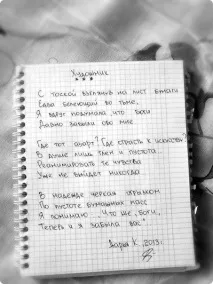 Художник
***
С тоской взглянув на лист бумаги
Едва белеющий во тьме,
Я вдруг подумала, что боги
Давно забыли обо мне.
Где тот азарт? Где страсть к искусству?
В душе лишь тлен и пустота.
Реанимировать те чувства
Уже не выйдет никогда
В надежде черкая огрызком
По пустоте бумажных масс
Я понимаю, Что же, боги,
Теперь и я забыла вас"
Дарья К., 2013 г.